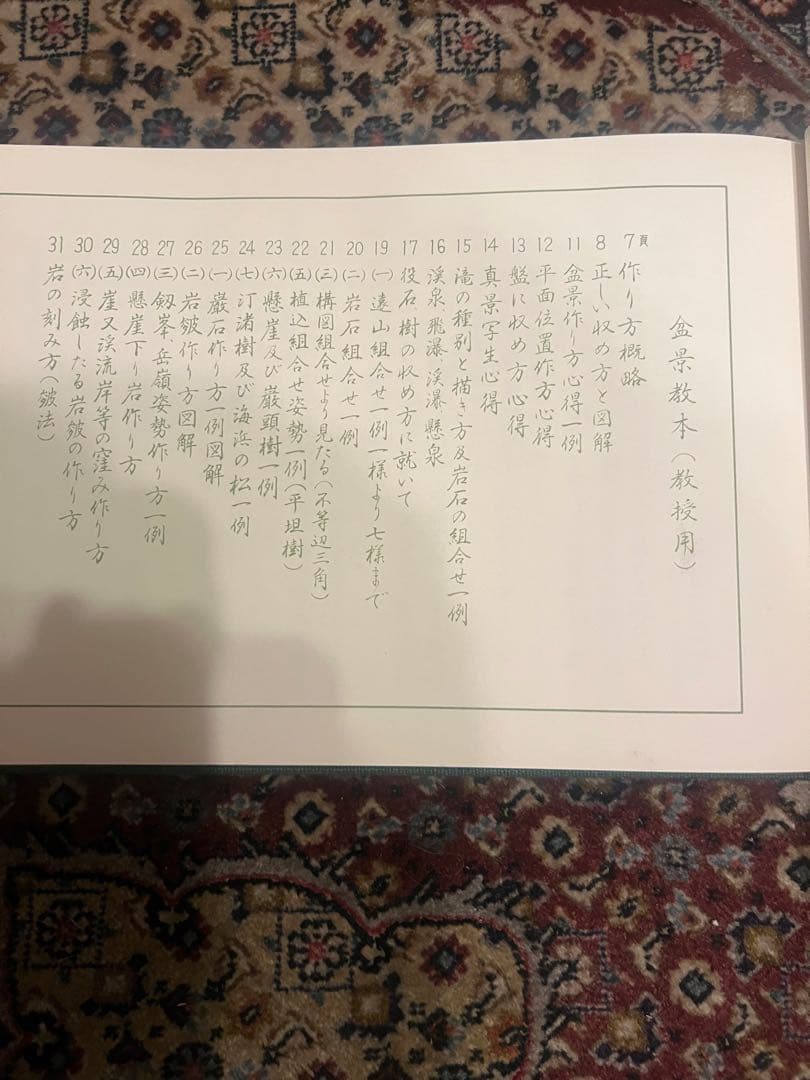 盆景教本（教授用）
7頁 作り方概略
8 正しい収め方と図解
11 盆景作り方心得一例
12 平面位置作方心得
13 盤に収め方心得
14 真景写生心得
15 滝の種別と描き方及岩石の組合せ一例
16 渓泉 飛瀑 渓瀑 懸泉
17 役石樹の収め方に就いて
19 (一) 遠山組合せ一例一様より七様まで
20 (二) 岩石組合せ一例
21 (三) 構図組合せより見たる（不等辺三角）
22 (五) 植込組合せ姿勢一例（平坦樹）
23 (六) 懸崖及び巌頭樹一例
24 (七) 汀渚樹及び海浜の松一例
25 (一) 巌石作り方一例図解
26 (二) 岩皴作り方図解
27 (三) 剱峯、岳嶺姿勢作り方一例
28 (四) 懸崖下り岩作り方
29 (五) 崖又渓流岸等の窪み作り方
30 (六) 浸蝕したる岩皴の作り方
31 岩の刻み方（皴法）